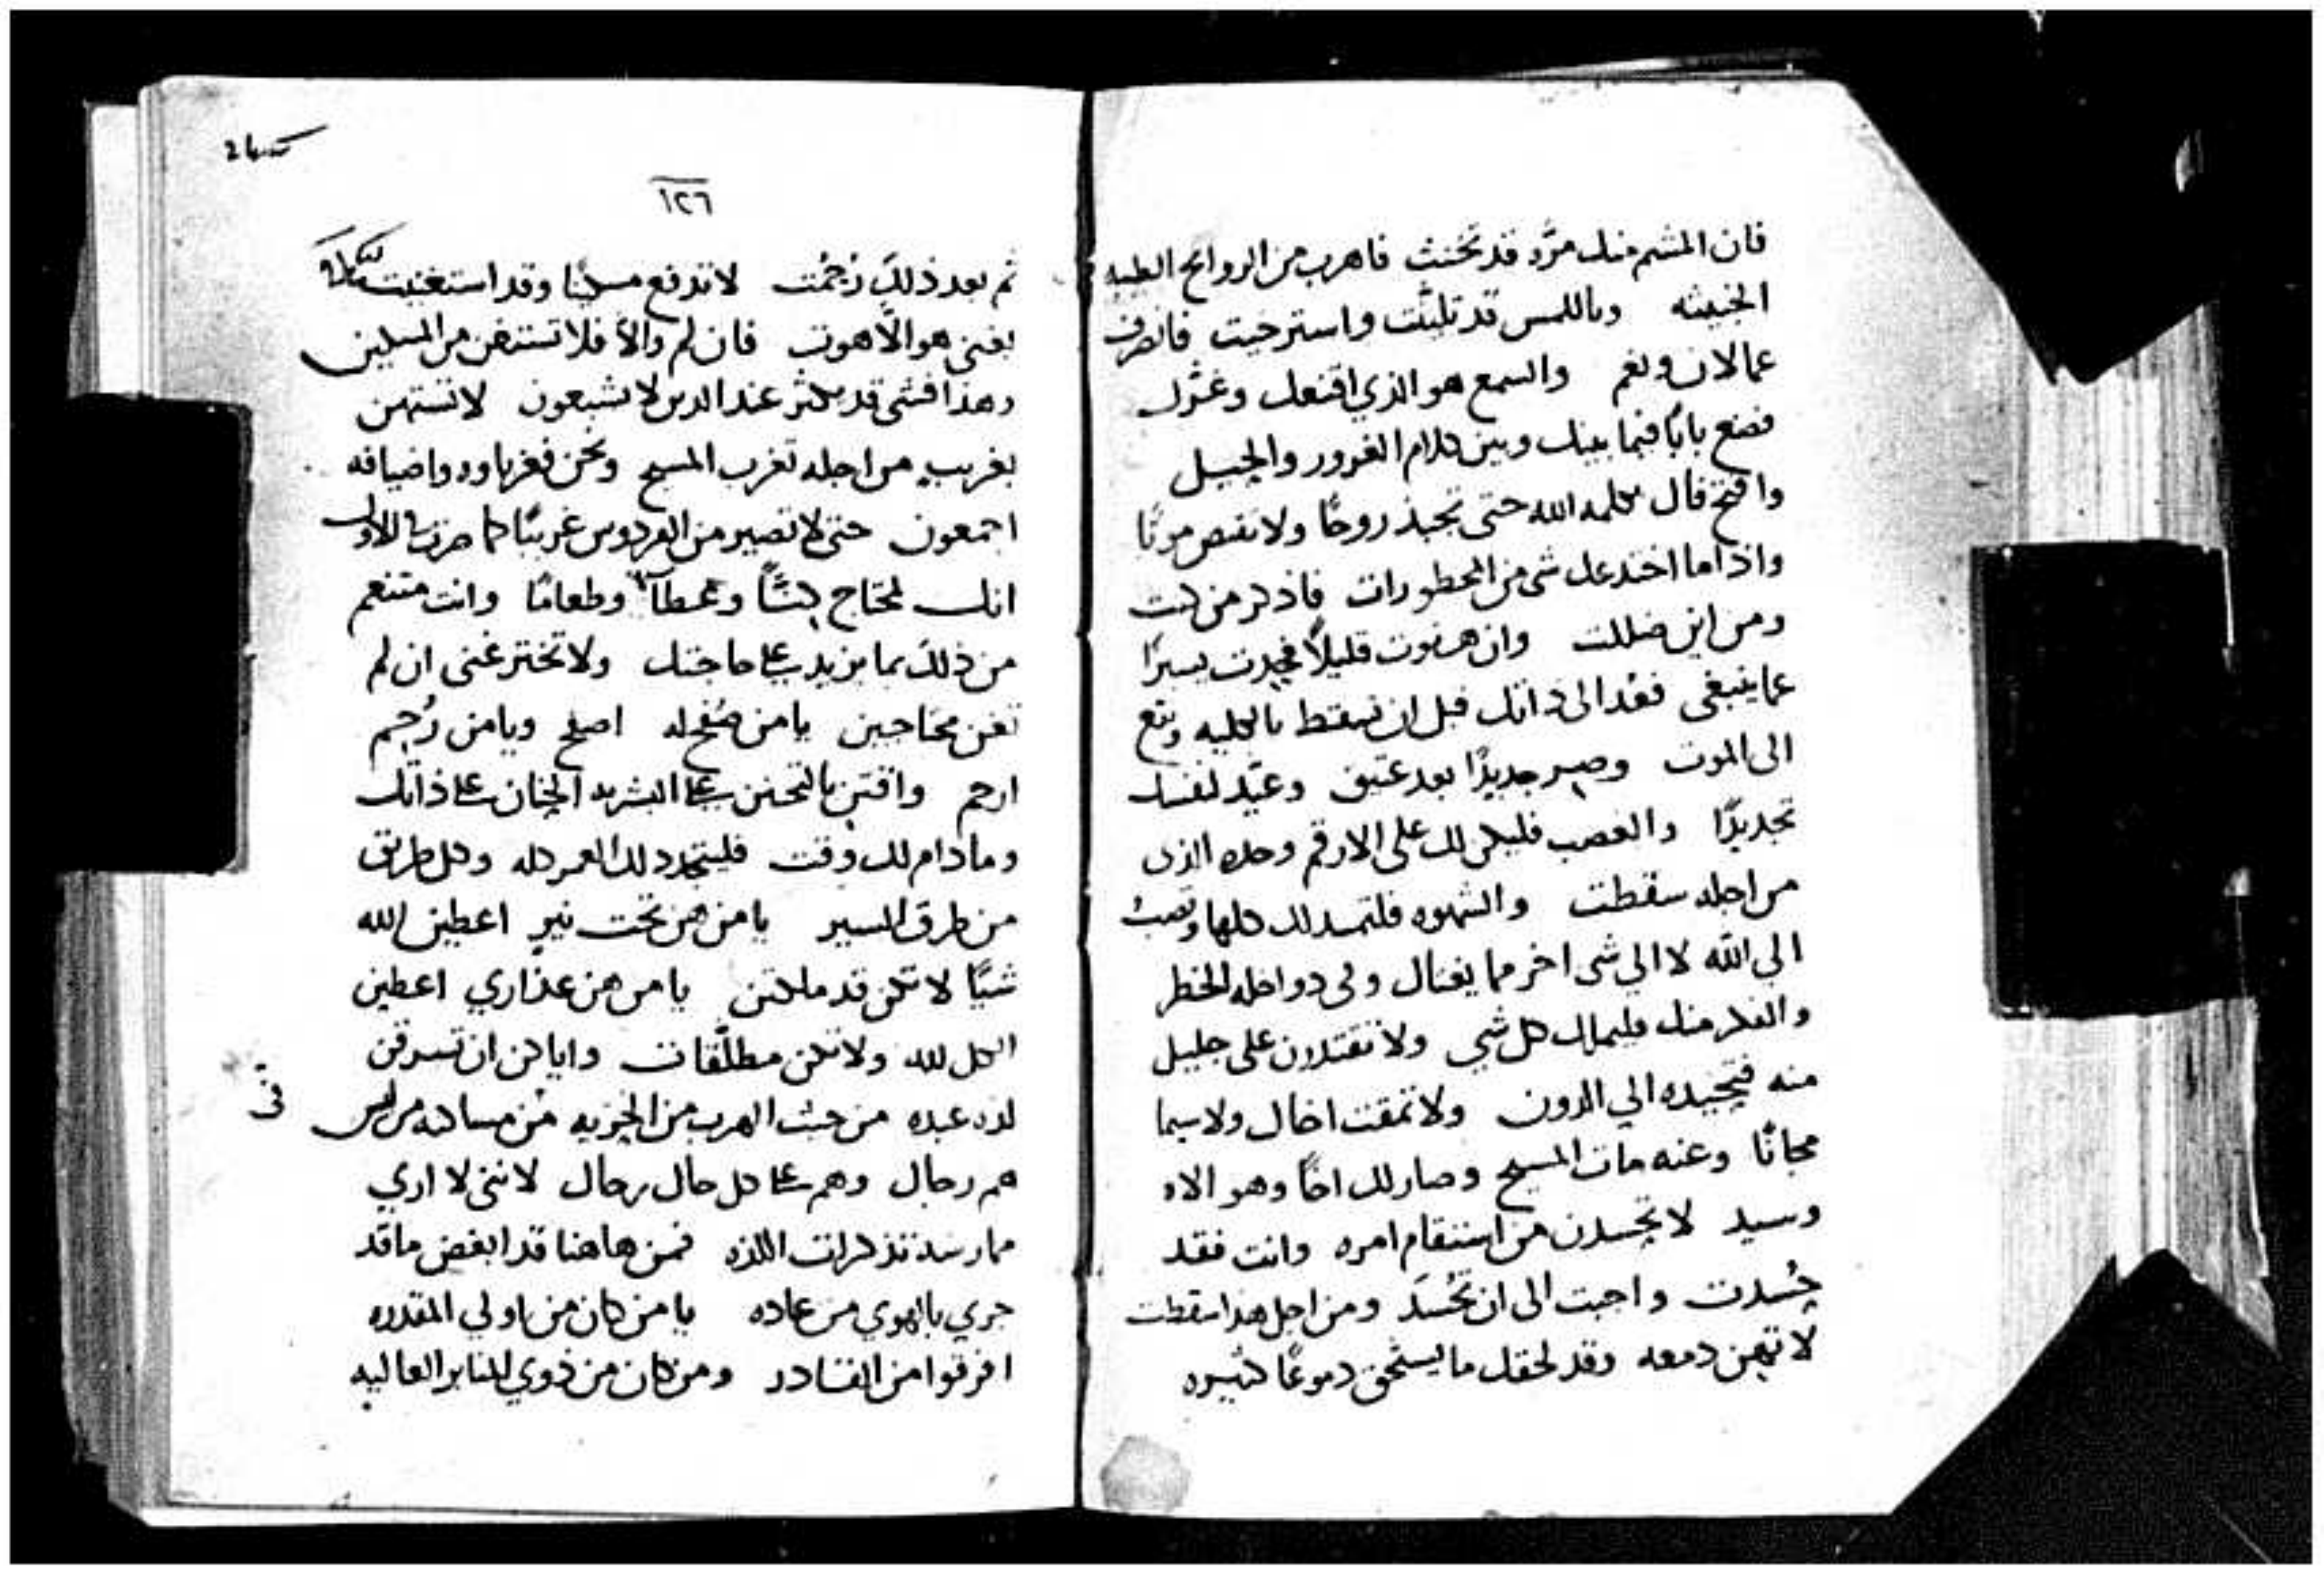 فان المشم منك مرَّد قد تخنث فاهرب من الروايح الطيبه
الخبيثه وباللمس قد تليّنت واسترخيت فانصرف
عما لان ونعم والسمع هو الذي اقنعك وغرَّك
فضع بابًا فيما بينك وبين كلام الغرور والجبيل
وافتح فاك بكلمه الله حتى تجبذ روحًا ولا تقبض موتًا
واذا ما اختدعك شى من المحظورات فاذكر من كنت
ومن اين ضللت وان هفوت قليلاً فحدت يسيرًا
عما ينبغى فعُد الى ذاتك قبل ان تسقط بالكليه وتقع
الى الموت وصِر جديدًا بعد عتيق وعيّد لنفسك
تجديدًا والغضب فليكن لك على الارقم وحده الذى
من اجله سقطت والشهوه فلتمد لك كلها وتصبُ
الي الله لا الي شى اخر مما يغتال وفى دواخله الخطر
والفكر منك فليمالك كل شي ولا تقتدرن على جليل
منه فتجبذه الي الدون ولا تمقت اخاك ولا سيما
مجانًا وعنه مات المسيح وصار لك اخًا وهو الاه
وسيد لا تحسدن من استقام امره وانت فقد
حُسدت واجبت الى ان تُحسَد ومن اجل هذا سقطت
لا تهِن دمعه وقد لحقك ما يستحق دموعًا كثيره
١٢٦
ثم بعد ذلك رُحمت لا تدفع مسكينًا وقد استغنيت
بغنى هو الاهوت فان لم والا فلا تستغن من المساكين
وهذا فشى قد يكثر عند الدين لا يشبعون لا تستهن
بغريبٍ من اجله تغرب المسيح ونحن فغرباوه واضيافه
اجمعون حتى لا تصير من الفردوس غريبًا كما صرت بالاول
انك لمحتاج كِنّاً وغطآً وطعامًا وانت متنعم
من ذلك بما يزيد على حاجتك ولا تختر غنى ان لم
تغن محتاجين يا من صُفح له اصفح ويا من رُحم
ارحم واقتنِ بالتحنن على البشريه الحنان على ذاتك
وما دام لك وقت فليتجدد لك العمر كله وكل طريق
من طرق السير يا من هن تحت نيرٍ اعطين الله
شيًّا لا تكن قد ملكتن يا من هن عذاري اعطين
الكل لله ولا تكن مطلّقات واياكن ان تسرقن
لذه عبده من حيث الهرب من الحزيه من مساكنه من ليس
هم رجال وهم على كل حال رجال لاننى لا اري
ممارسة تذكرات اللذه فمن هاهنا قد ابغض ما قد
جري بالهوي من عاده يا من كان من اولي المقدره
افرقوا من القادر ومن كان من ذوي المنابر العاليه